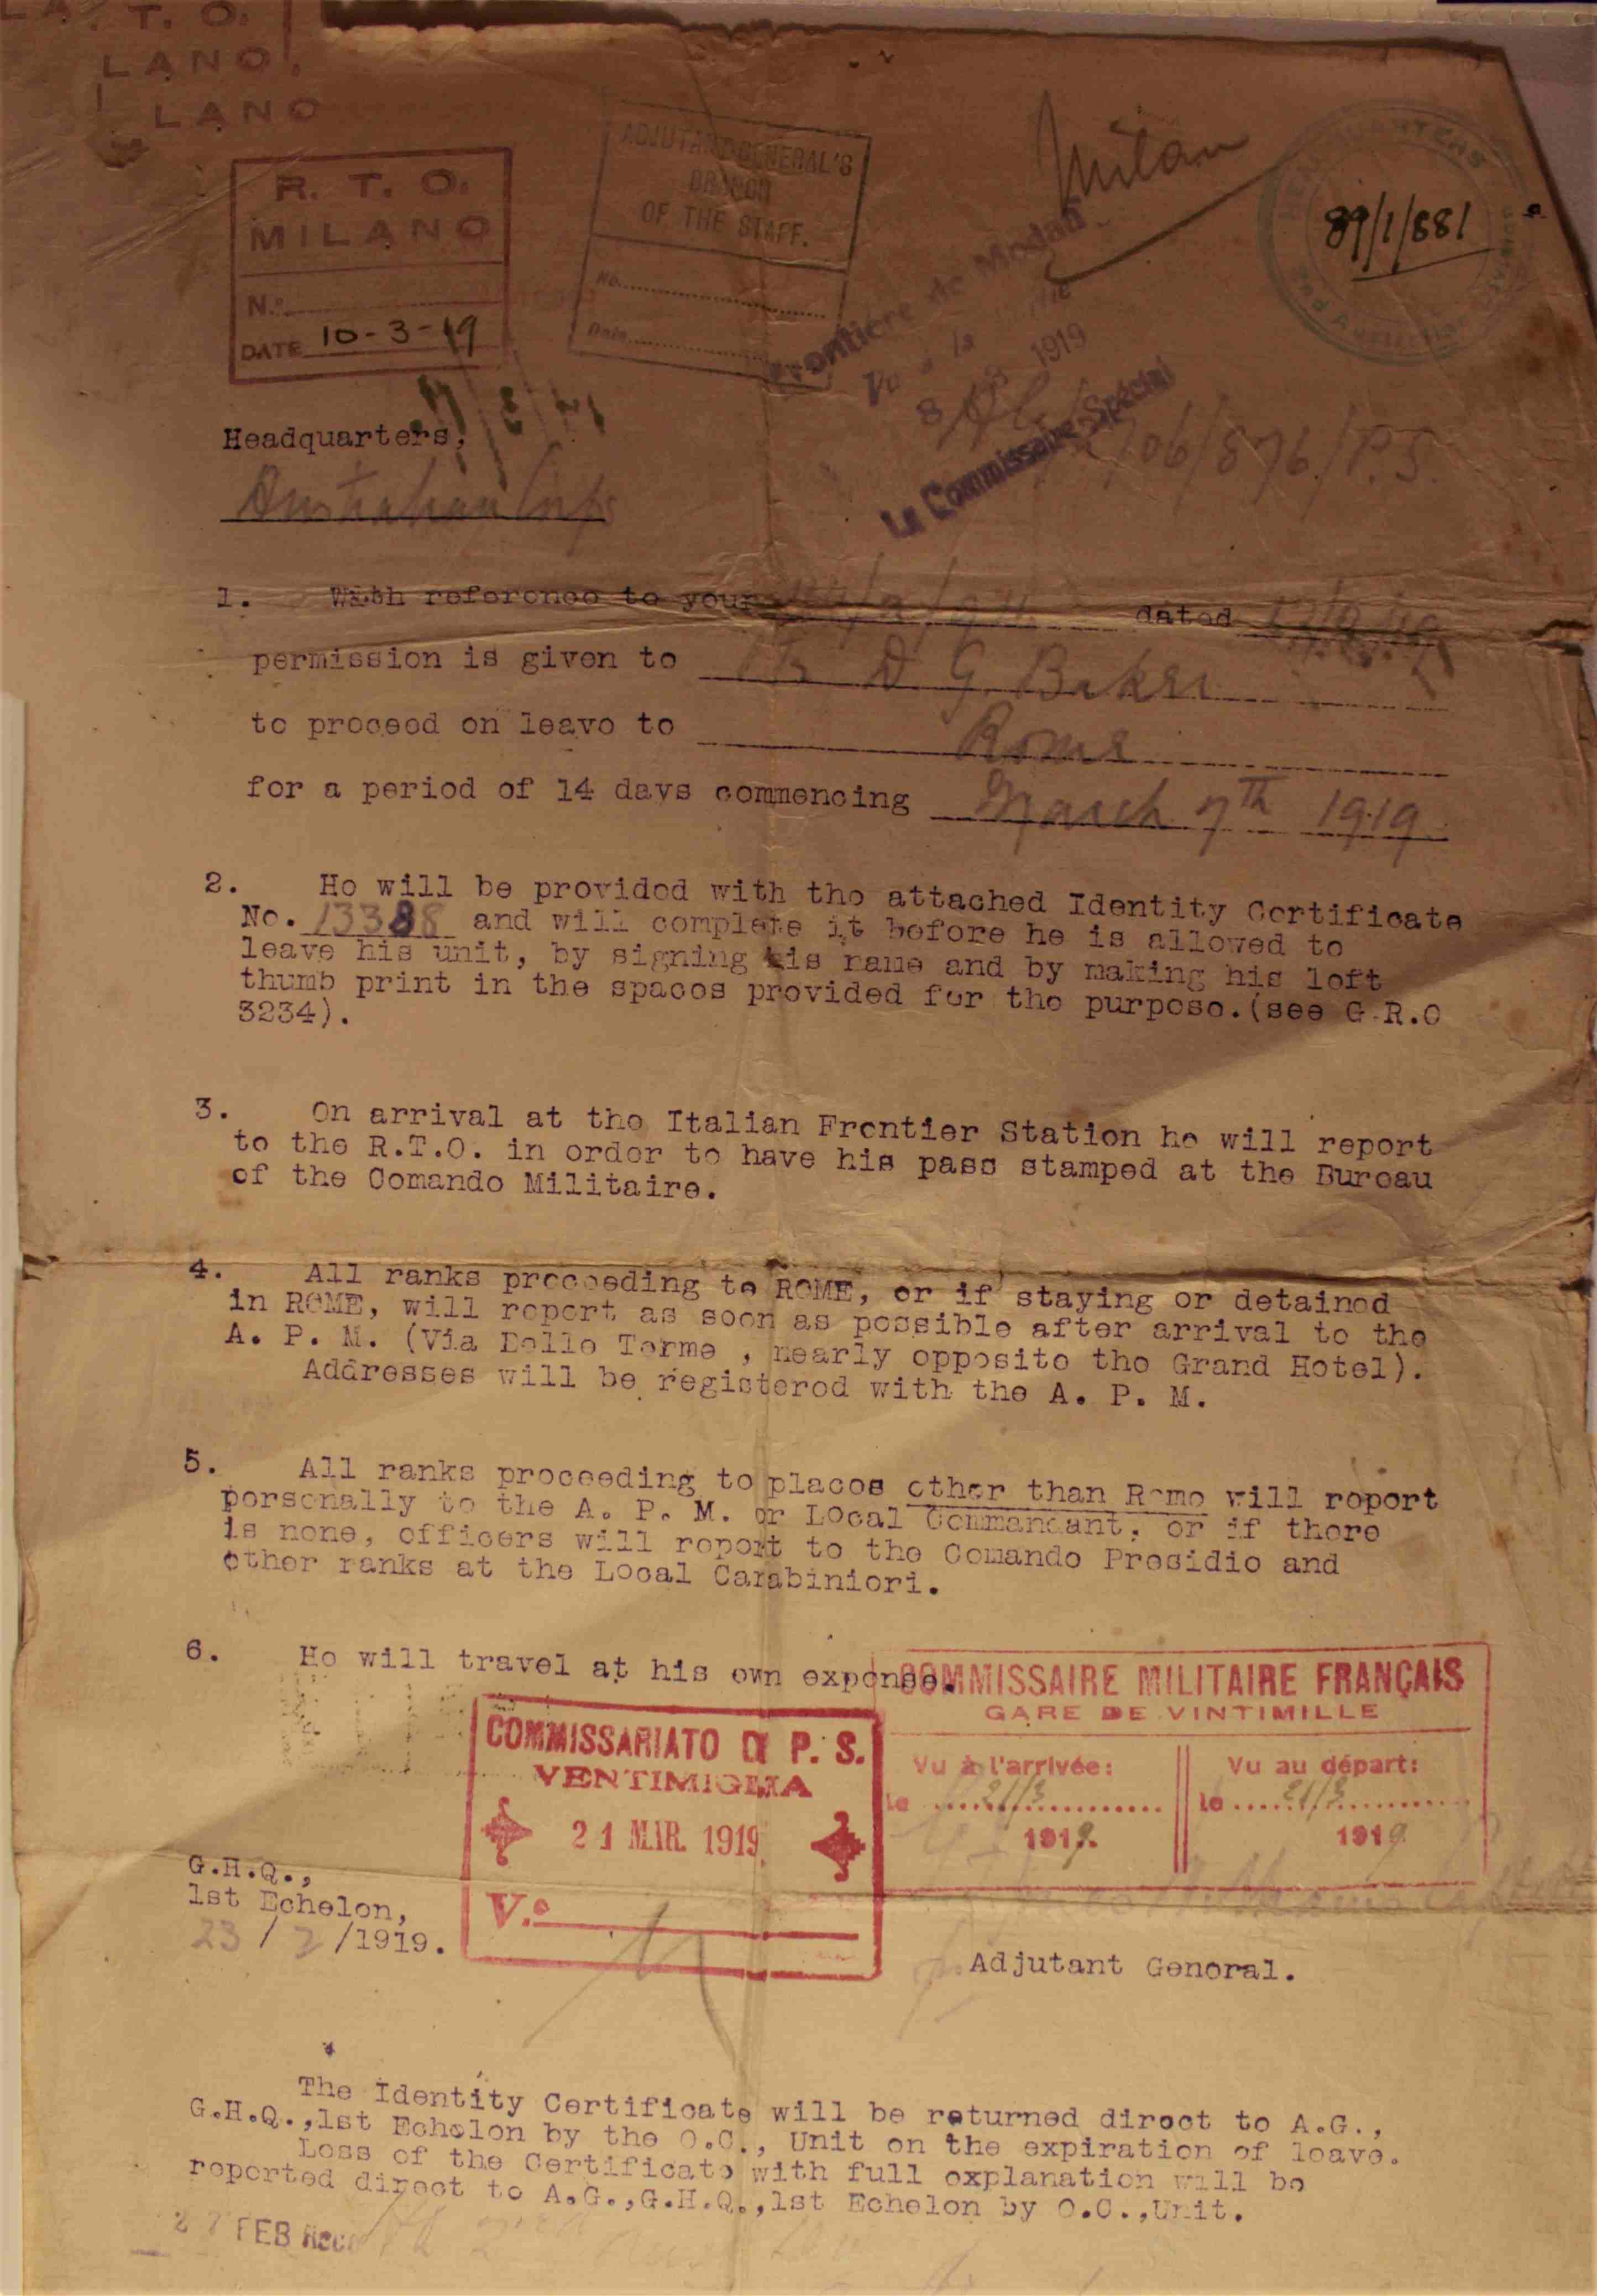 T. O.
LANO.
LANO
R. T. O.
MILANO
N.º
DATE 10-3-19
ADJUTANT GENERAL'S
BRANCH
OF THE STAFF.
No.
Date
Milan
HEADQUARTERS
89/1/881
Frontière de Modane
8 1919
Le Commissaire Spécial
Headquarters,
Australian Corps
106/876/P.S.
1. With reference to your dated
permission is given to D. G. Baker
to proceed on leave to Rome
for a period of 14 days commencing March 7th 1919.
2. He will be provided with the attached Identity Certificate
No. 13388 and will complete it before he is allowed to
leave his unit, by signing his name and by making his left
thumb print in the spaces provided for the purpose.(see G.R.O
3234).
3. On arrival at the Italian Frontier Station he will report
to the R.T.O. in order to have his pass stamped at the Bureau
of the Comando Militaire.
4. All ranks proceeding to ROME, or if staying or detained
in ROME, will report as soon as possible after arrival to the
A. P. M. (Via Delle Terme , nearly opposite the Grand Hotel).
Addresses will be registered with the A. P. M.
5. All ranks proceeding to places other than Rome will report
personally to the A. P. M. or Local Commandant, or if there
is none, officers will report to the Comando Presidio and
other ranks at the Local Carabinieri.
6. He will travel at his own expense.
COMMISSAIRE MILITAIRE FRANÇAIS
GARE DE VINTIMILLE
Vu à l'arrivée: Vu au départ:
le 21/3 le 21/3
1919. 1919
COMMISSARIATO DI P. S.
VENTIMIGLIA
21 MAR. 1919
V.º
G.H.Q.,
1st Echelon,
23 / 2 /1919.
Adjutant General.
The Identity Certificate will be returned direct to A.G.,
G.H.Q.,1st Echelon by the O.C., Unit on the expiration of leave.
Loss of the Certificate with full explanation will be
reported direct to A.G.,G.H.Q.,1st Echelon by O.C.,Unit.
27 FEB Recd